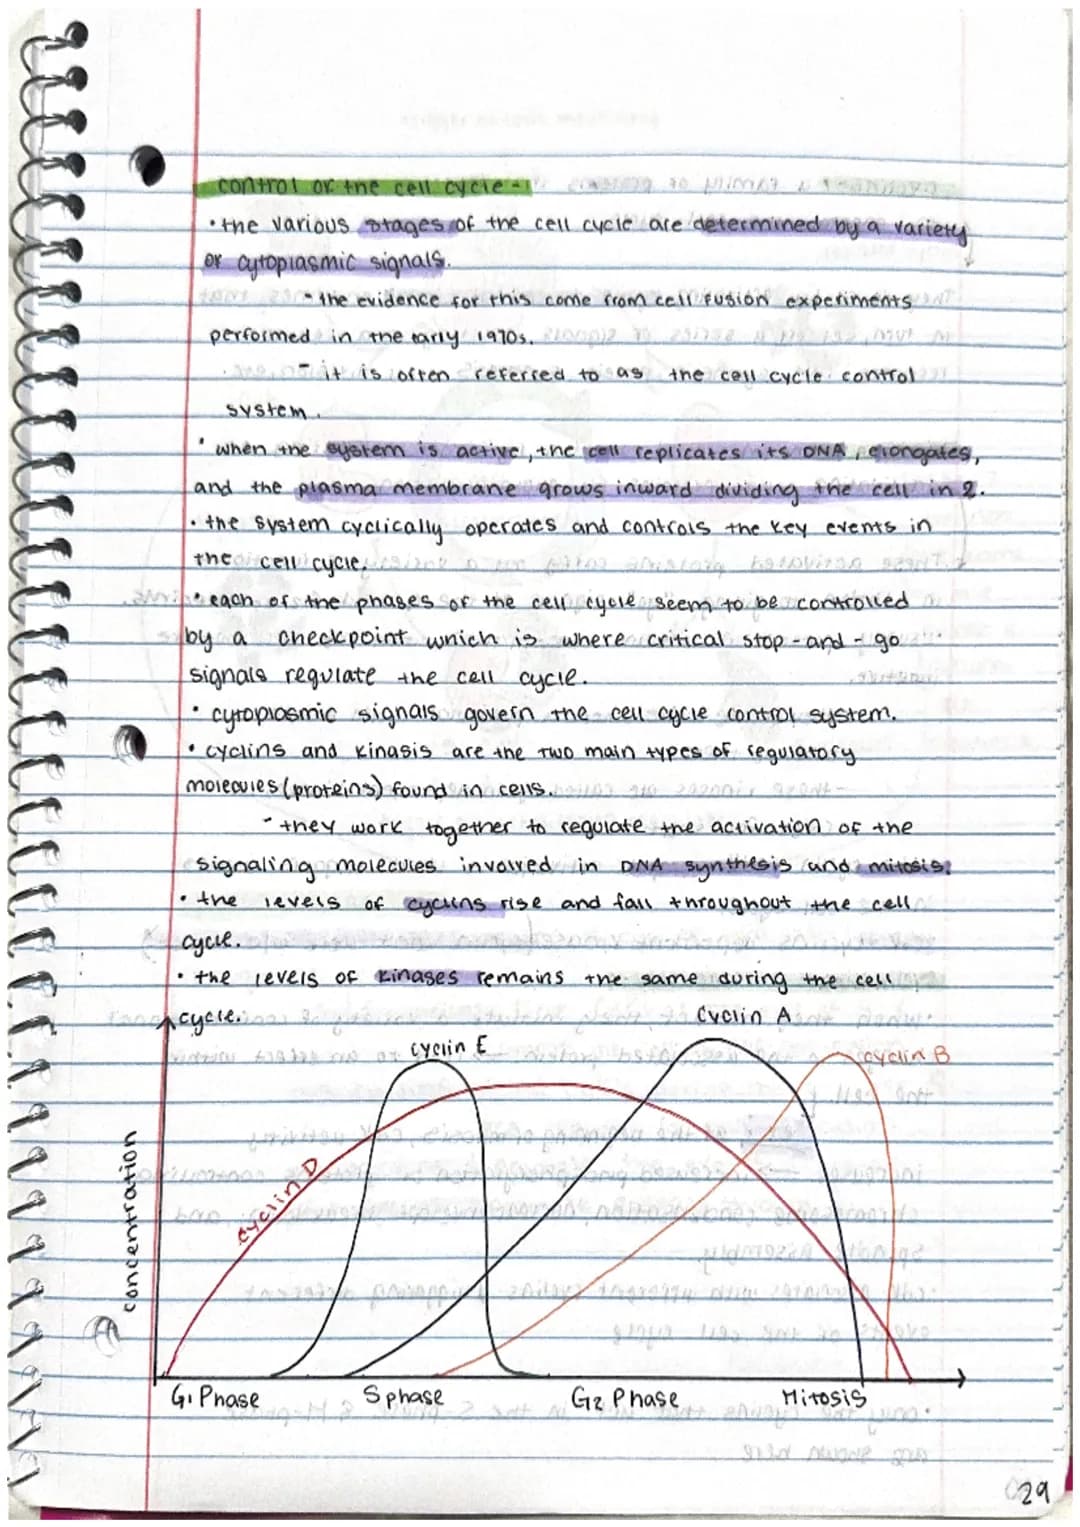 control of the cell cycle -
• the various stages of the cell cycle are determined by a variety
of cytoplasmic signals.
• the evidence for this come from cell fusion experiments
performed in the early 1970s.
- it is often referred to as the cell cycle control
system.
• when the system is active, the cell replicates its DNA, elongates,
and the plasma membrane grows inward dividing the cell in 2.
• the system cyclically operates and controls the key events in
the cell cycle.
• each of the phases of the cell cycle seem to be controlled
by a checkpoint which is where critical stop-and-go
signals regulate the cell cycle.
• cytoplasmic signals govern the cell cycle control system.
• cyclins and kinasis are the two main types of regulatory
molecules (proteins) found in cells.
- they work together to regulate the activation of the
signaling molecules involved in DNA synthesis and mitosis.
• the levels of cyclins rise and fall throughout the cell
cycle.
• the levels of kinases remains the same during the cell
cycle.
Cyclin A
cyclin E
cyclin B
cyclin D
concentration
G1 Phase S phase G2 Phase Mitosis
29